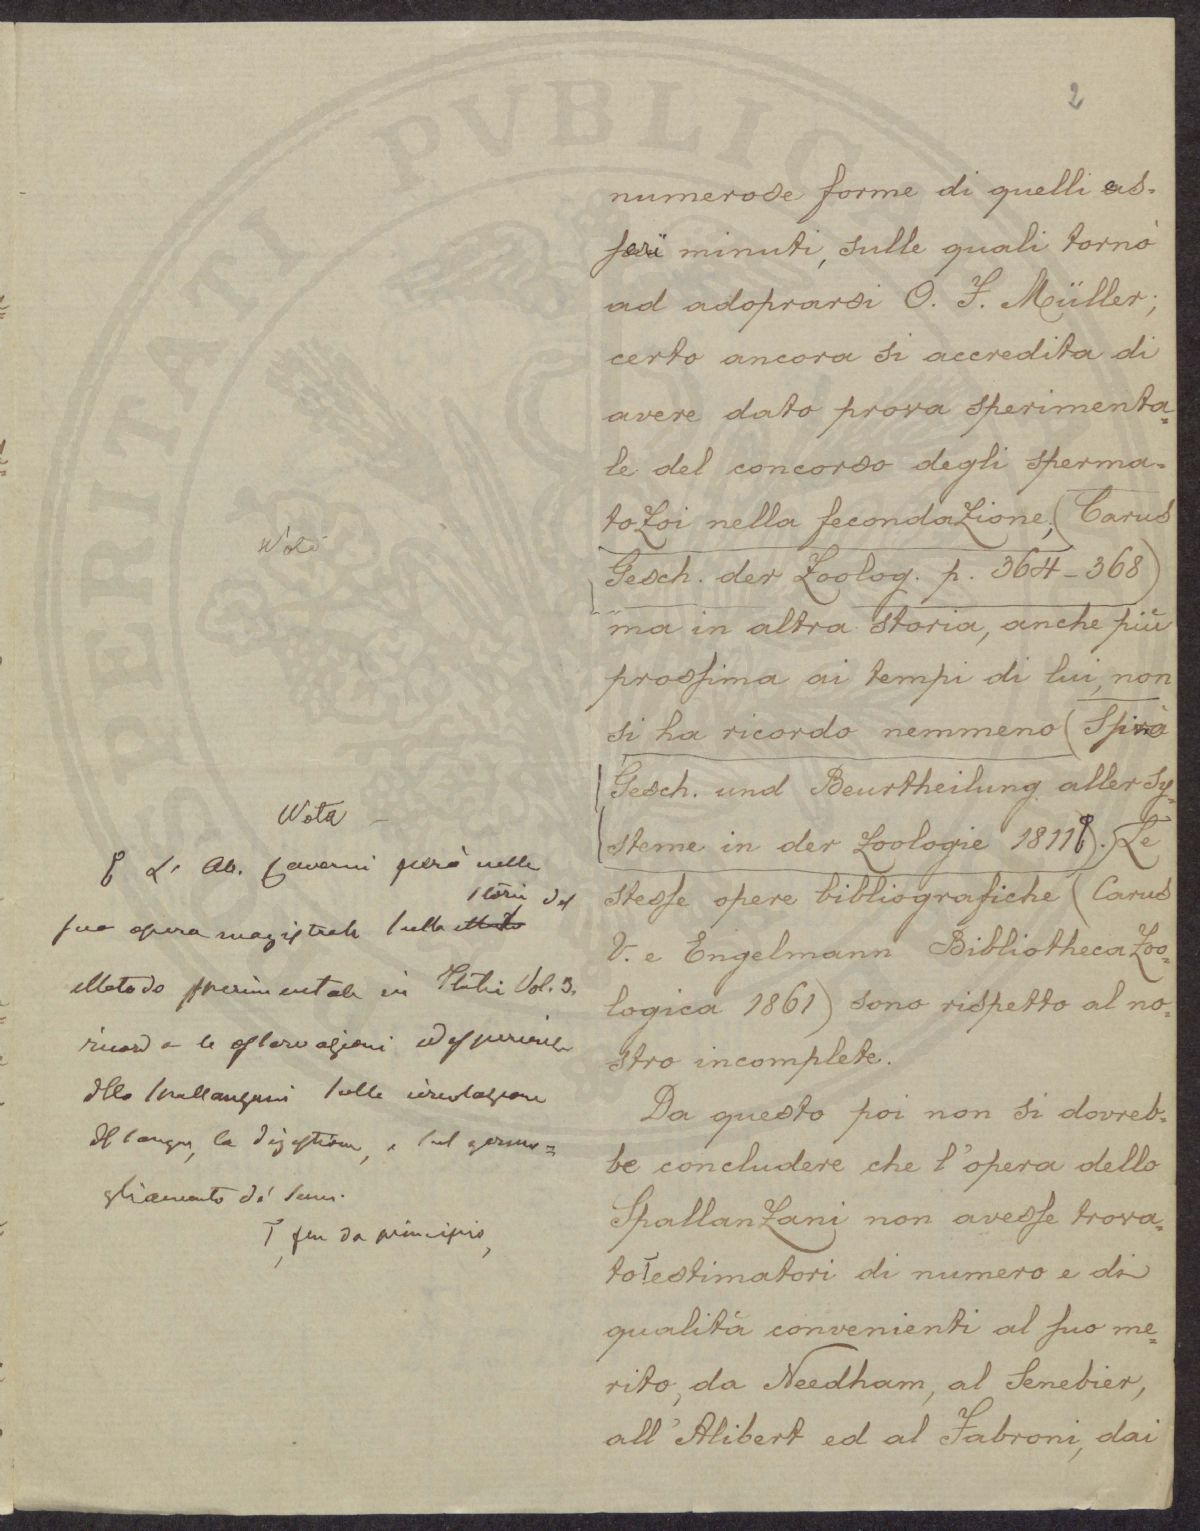 2
numerose forme di quelli es-
seri minuti, sulle quali tornò
ad adoprarsi O. F. Müller;
certo ancora si accredita di
avere dato prova sperimenta=
le del concorso degli sperma-
tozoi nella fecondazione, (Carus
Gesch. der Zoolog. p. 364-368)
ma in altra storia, anche più
prossima ai tempi di lui, non
si ha ricordo nemmeno (Spix
Gesch. und Beurtheilung aller Sy=
steme in der Zoologie 1811). Le
stesse opere bibliografiche (Carus
V. e Engelmann Bibliotheca Zoo=
logica 1861) sono rispetto al no=
stro incomplete.
Da questo poi non si dovreb-
be concludere che l'opera dello
Spallanzani non avesse trova=
to T estimatori di numero e di
qualità convenienti al suo me=
rito, da Needham, al Senebier,
all'Alibert ed al Fabroni, dai
Nota
Nota
L'Ab. Caverni però nella
storia del
sua opera magistrale sulla
Metodo sperimentale in Italia Vol. 3.
ricorda le osservazioni ed esperienze
dello Spallanzani sulla circolazione
del sangue, la digestione, e sul germo=
gliamento de' semi.
T, fin da principio,
PERITATI PVBLIC